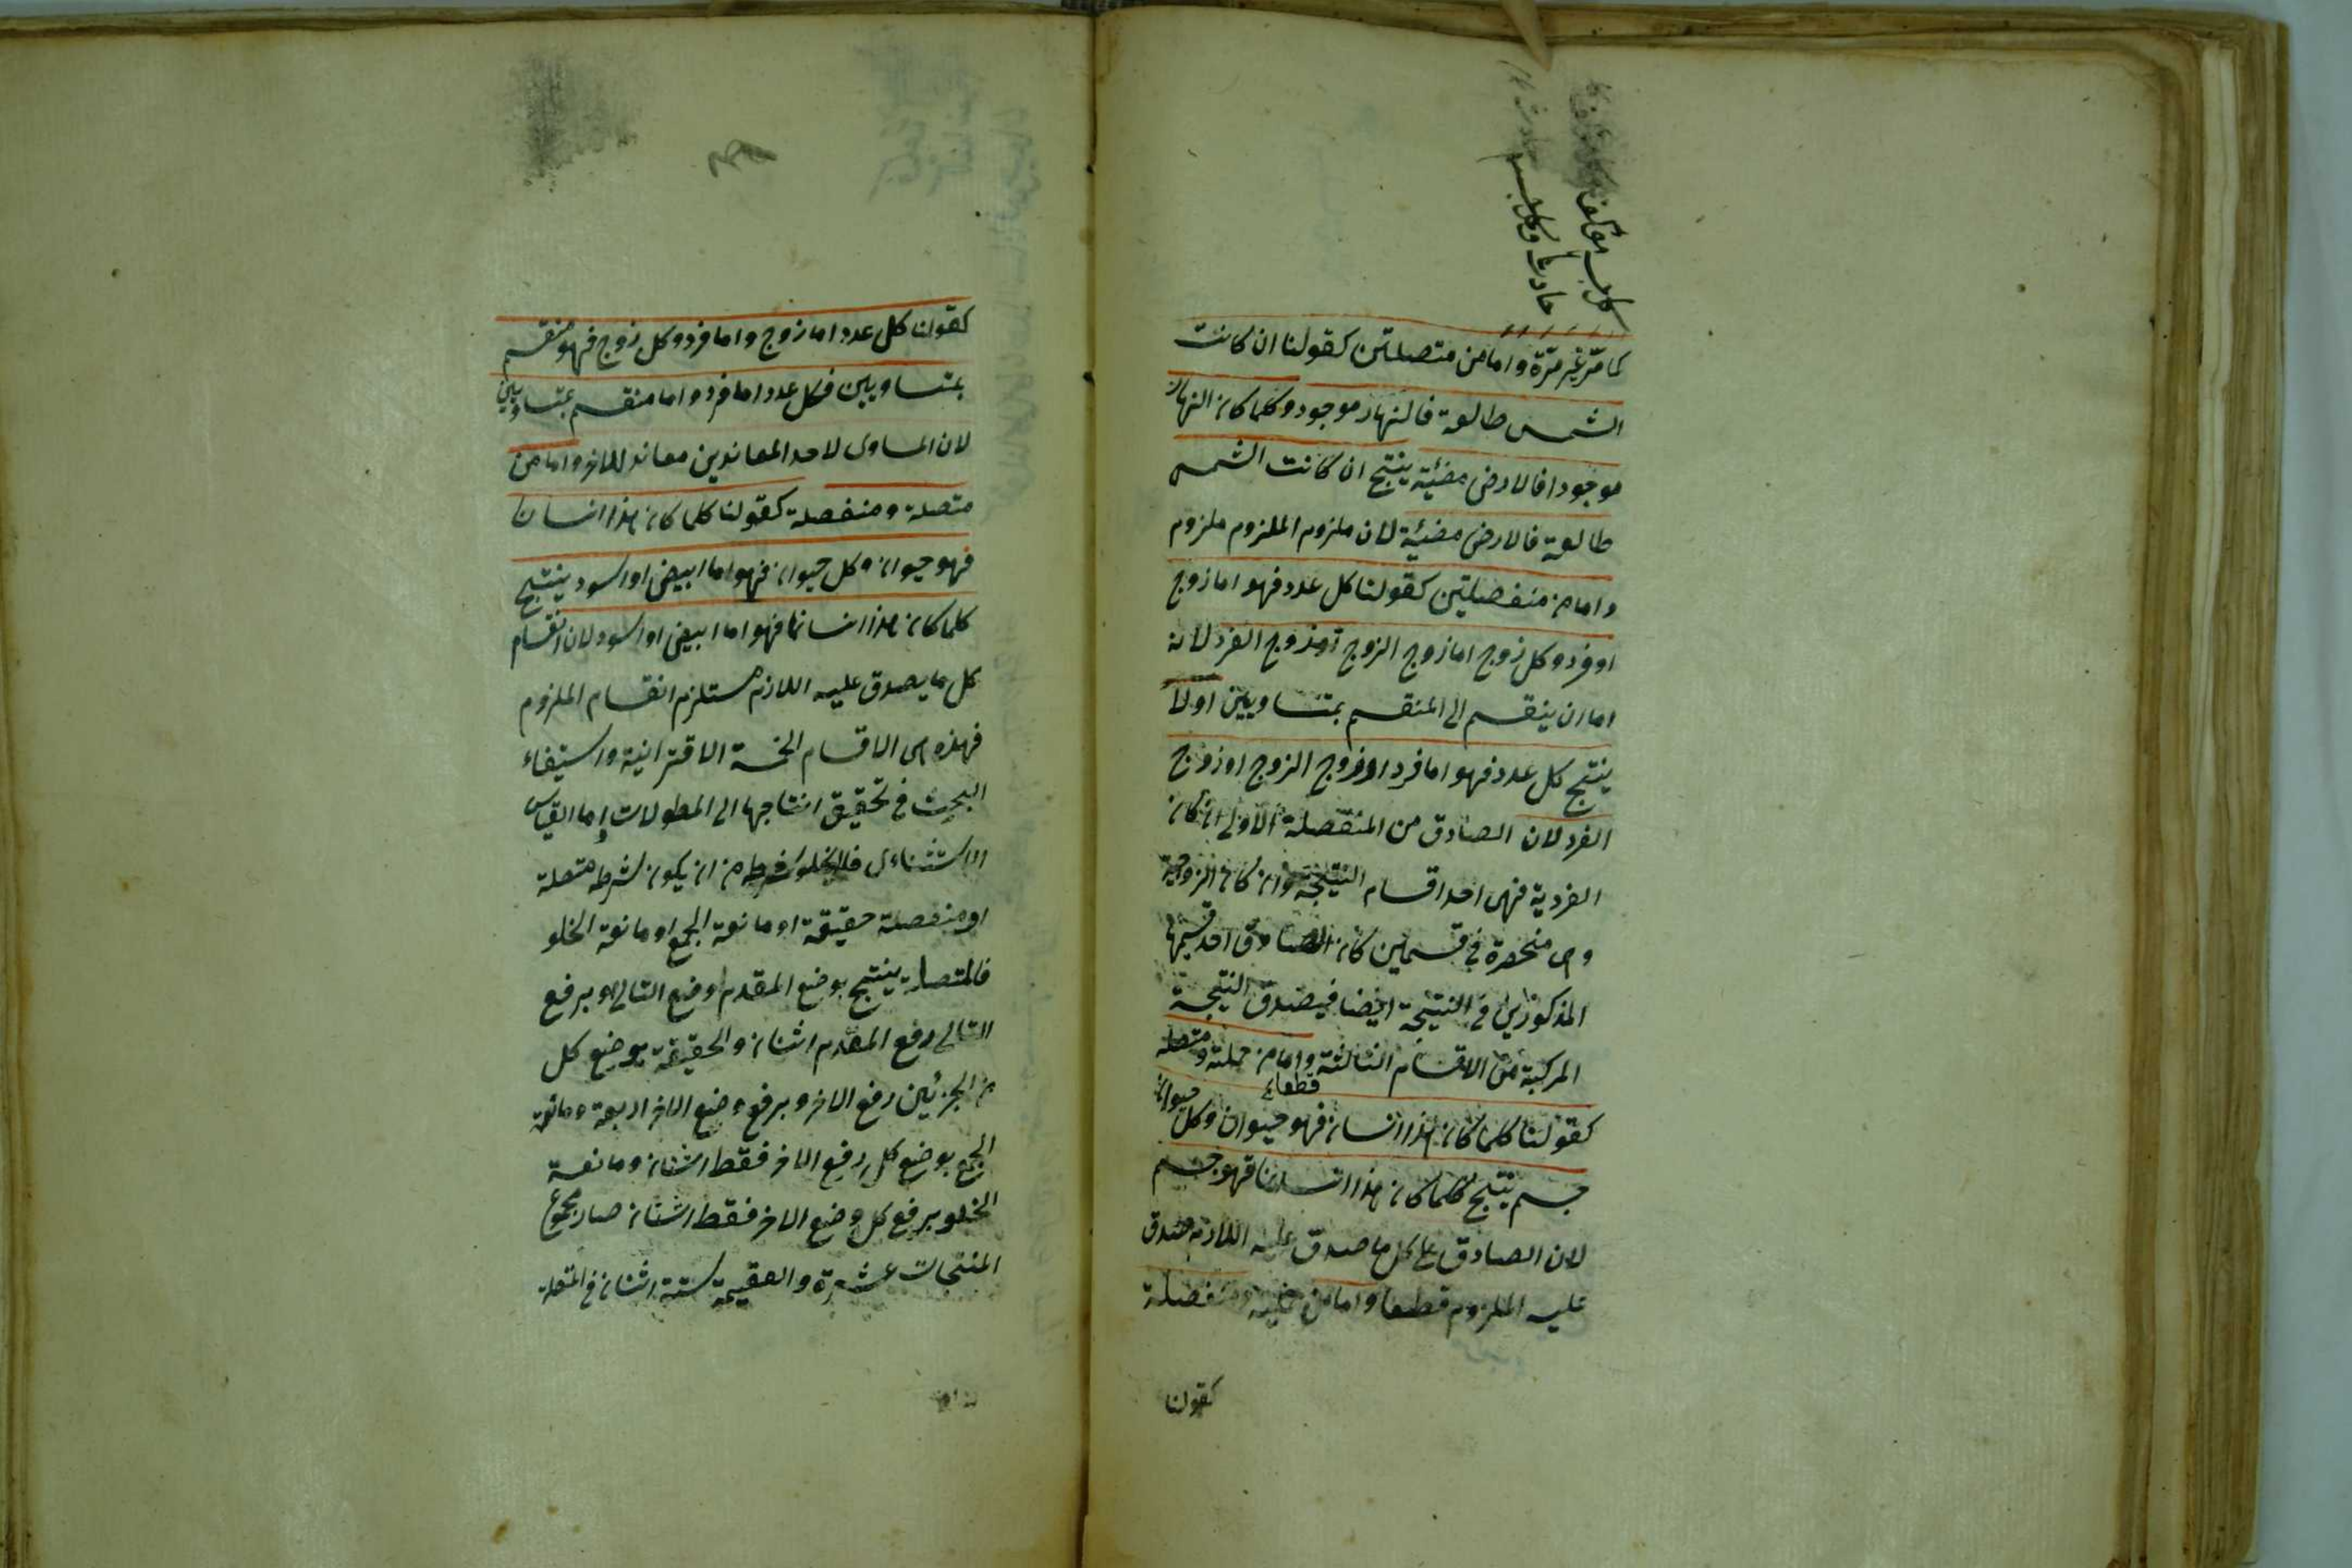 كل جسم مؤلف
حادث وكل جسم
كما مر غير مرة واما من متصلتين كقولنا ان كانت
الشمس طالعة فالنهار موجود وكلما كان النهار
موجودا فالارض مضيئة ينتج ان كانت الشمس
طالعة فالارض مضيئة لان ملزوم الملزوم ملزوم
واما من منفصلتين كقولنا كل عدد فهو اما زوج
او فرد وكل زوج اما زوج الزوج او زوج الفرد لانه
اما ان ينقسم الى المنقسم بمتساويين اولا
ينتج كل عدد فهو اما فرد او زوج الزوج او زوج
الفرد لان الصادق من المنفصلة الاولى ان كان
الفردية فهى احد اقسام النتيجة وان كان الزوجية
وهى منحصرة فى قسمين كان الصادق احد قسميها
المذكورين فى النتيجة ايضا فيصدق النتيجة
المركبة من الاقسام الثالثة واما من حملية ومتصلة
قطعا
كقولنا كلما كان هذا انسان فهو حيوان وكل حيوان
جسم ينتج كلما كان هذا انسانا فهو جسم
لان الصادق على كل ما صدق عليه اللازم صدق
عليه الملزوم قطعا واما من حملية ومنفصلة
كقولنا
كقولنا كل عدد اما زوج واما فرد وكل زوج فهو منقسم
بمتساويين فكل عدد اما فرد واما منقسم بمتساويين
لان المساوى لاحد المعاندين معاند للاخر واما من
متصلة ومنفصلة كقولنا كلما كان هذا انسان
فهو حيوان وكل حيوان فهو اما ابيض او اسود ينتج
كلما كان هذا انسانا فهو اما ابيض او اسود لان انقسام
كل ما يصدق عليه اللازم مستلزم انقسام الملزوم
فهذه هى الاقسام الخمسة الاقترانية واستيفاء
البحث فى تحقيق انتاجها الى المطولات واما القياس
الاستثنائى فلا يخلو من ان يكون شرطه متصلة
او منفصلة حقيقة او مانعة الجمع او مانعة الخلو
فالمتصلة ينتج بوضع المقدم وضع التالى وبرفع
التالى رفع المقدم اثنان والحقيقة بوضع كل
من الجزئين رفع الاخر وبرفع وضع الاخر اربعة ومانعة
الجمع بوضع كل رفع الاخر فقط اثنان ومانعة
الخلو برفع كل وضع الاخر فقط اثنان صار مجموع
المنتجات عشرة والعقيمة ستة اثنان فى المتصلة